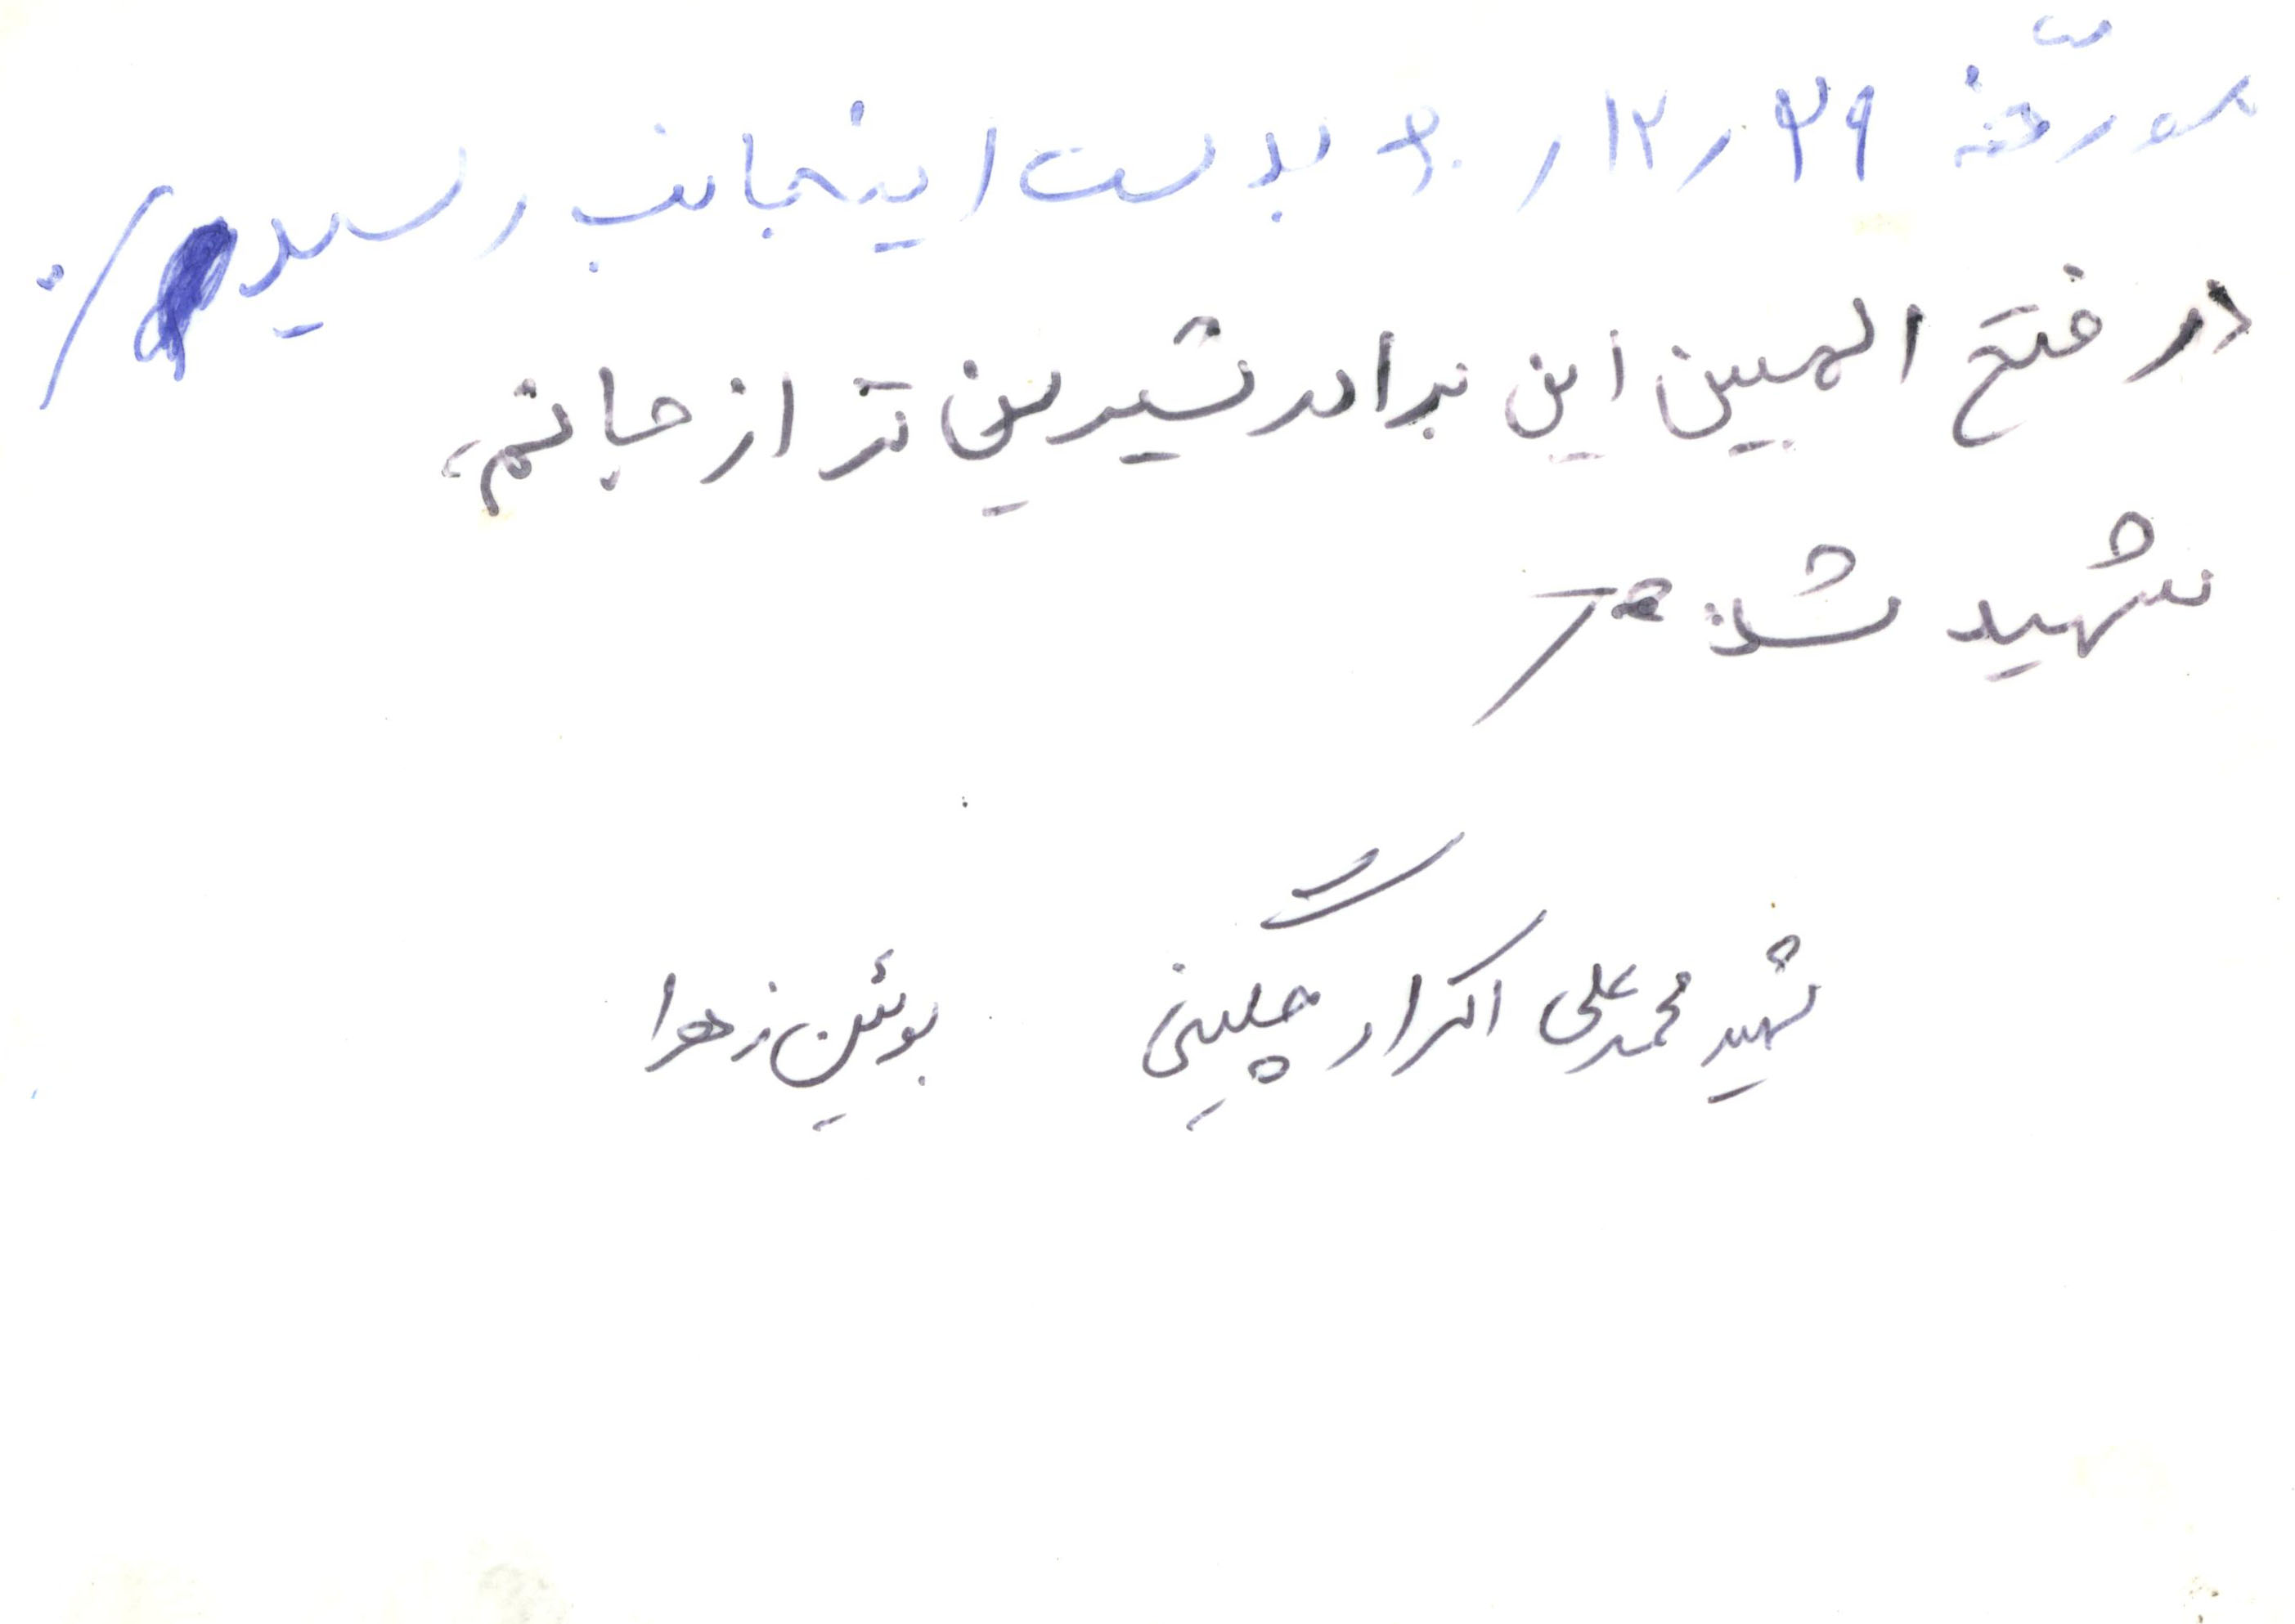 مورخهٔ ۲۹ / ۱۲ / ۶۰ بدست اینجانب رسید ./
در فتح المبین این برادر شیرین تر از جانم،
شهید شد
شهید محمد علی اکراد چگینی بوئین زهرا